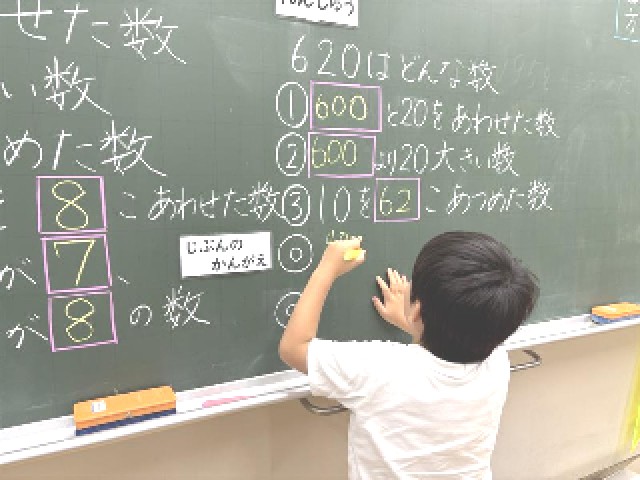 せた数
い数
めた数
8 こあわせた数
が 7、
が 8 の数
れんしゅう
620はどんな数
① 600 と20をあわせた数
② 600 より20大きい数
③ 10を 62 こあつめた数
じぶんの
かんがえ